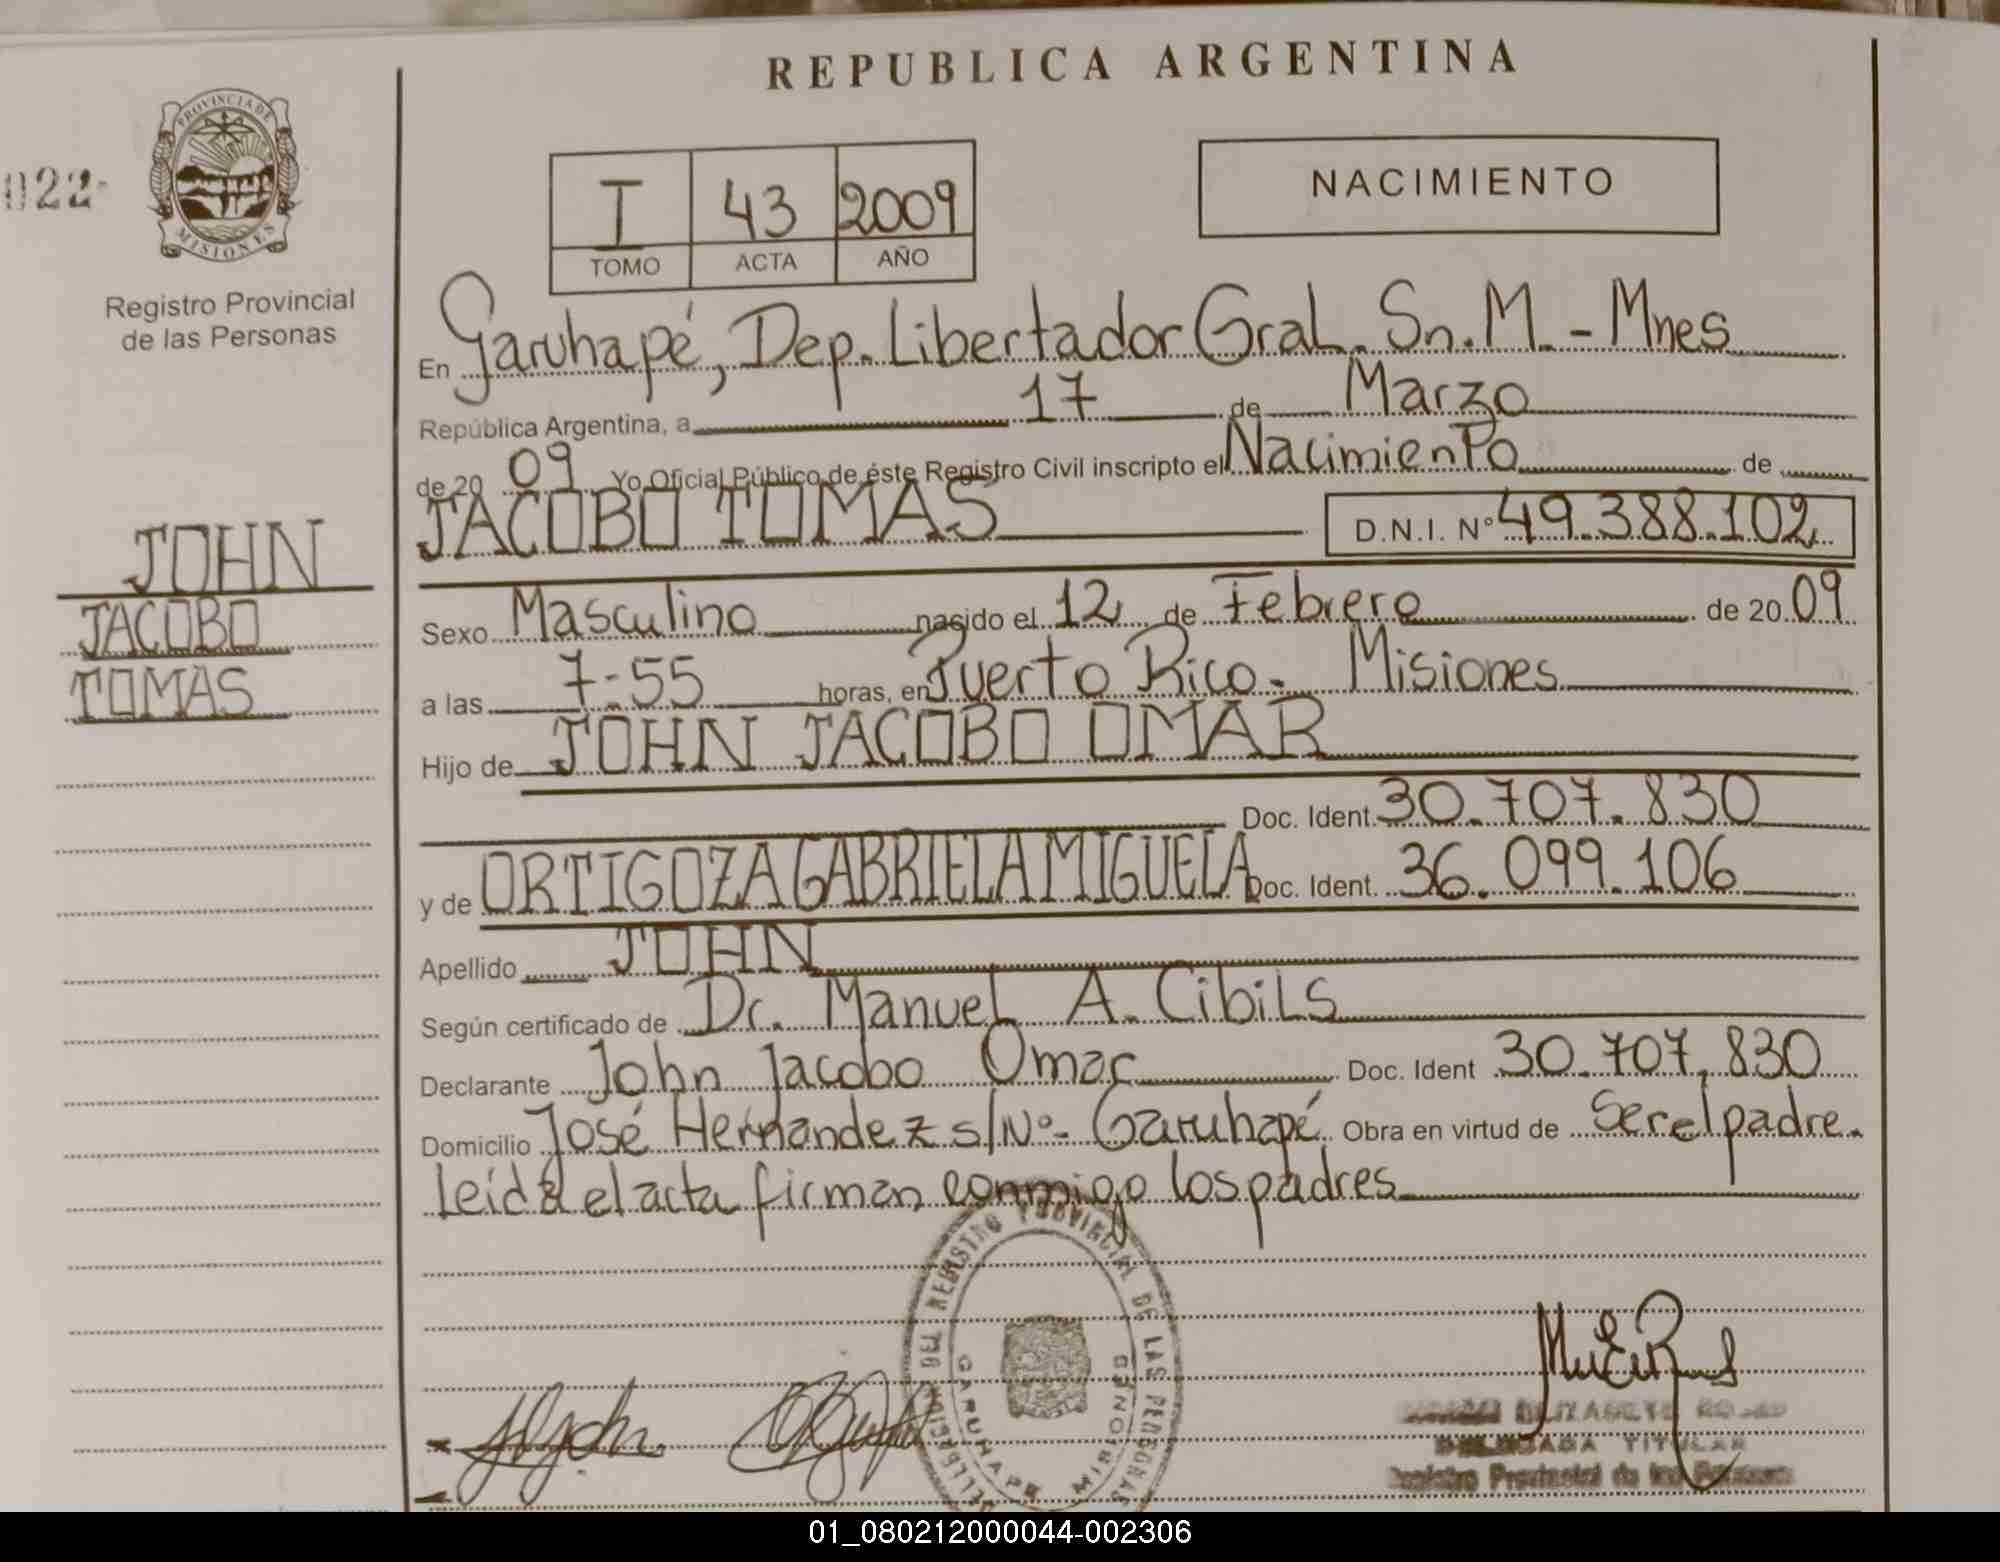 REPUBLICA ARGENTINA
022
PROVINCIA DE MISIONES
Registro Provincial
de las Personas
I 43 2009
TOMO ACTA AÑO
NACIMIENTO
En Garuhapé, Dep. Libertador Gral. Sn. M. - Mnes
República Argentina, a 17 de Marzo
de 20 09 Yo Oficial Público de éste Registro Civil inscripto el Nacimiento de
JACOBO TOMAS D.N.I. Nº 49.388.102
JOHN
JACOBO
TOMAS
Sexo Masculino nacido el 12 de Febrero de 20 09
a las 7-55 horas, en Puerto Rico - Misiones
Hijo de JOHN JACOBO OMAR
Doc. Ident. 30.707.830
y de ORTIGOZA GABRIELA MIGUELA Doc. Ident. 36.099.106
Apellido JOHN
Según certificado de Dr. Manuel A. Cibils
Declarante John Jacobo Omar Doc. Ident 30.707.830
Domicilio José Hernandez s/Nº - Garuhapé Obra en virtud de ser el padre.
Leida el acta firman conmigo los padres
DEL REGISTRO PROVINCIAL DE LAS PERSONAS
GARUHAPE MISIONES
ELIZABETE ROJAS
DELEGADA TITULAR
Registro Provincial de las Personas
01_080212000044-002306